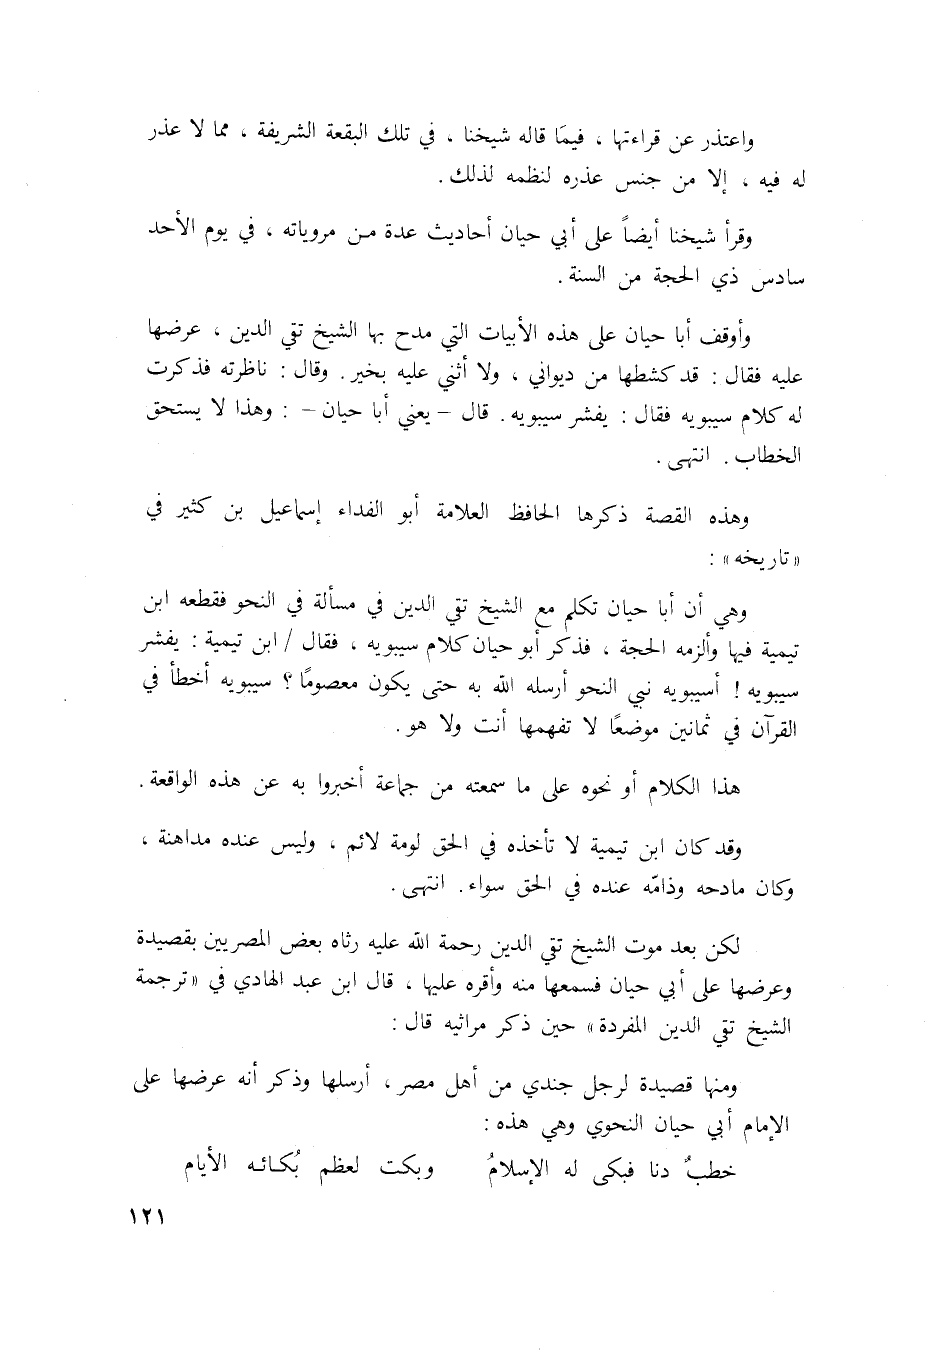 واعتذر عن قراءتها ، فيمَا قاله شيخنا ، في تلك البقعة الشريفة ، مما لا عذر
له فيه ، إلا من جنس عذره لنظمه لذلك .
وقرأ شيخنا أيضاً على أبي حيان أحاديث عدة من مروياته ، في يوم الأحد
سادس ذي الحجة من السنة .
وأوقف أبا حيان على هذه الأبيات التي مدح بها الشيخ تقي الدين ، عرضها
عليه فقال : قد كشطها من ديواني ، ولا أثني عليه بخير . وقال : ناظرته فذكرت
له كلام سيبويه فقال : يفشر سيبويه . قال – يعني أبا حيان – : وهذا لا يستحق
الخطاب . انتهى .
وهذه القصة ذكرها الحافظ العلامة أبو الفداء إسماعيل بن كثير في
« تاريخه » :
وهي أن أبا حيان تكلم مع الشيخ تقي الدين في مسألة في النحو فقطعه ابن
تيمية فيها وألزمه الحجة ، فذكر أبو حيان كلام سيبويه ، فقال / ابن تيمية : يفشر
سيبويه ! أسيبويه نبي النحو أرسله الله به حتى يكون معصومًا ؟ سيبويه أخطأ في
القرآن في ثمانين موضعًا لا تفهمها أنت ولا هو .
هذا الكلام أو نحوه على ما سمعته من جماعة أخبروا به عن هذه الواقعة .
وقد كان ابن تيمية لا تأخذه في الحق لومة لائم ، وليس عنده مداهنة ،
وكان مادحه وذامّه عنده في الحق سواء . انتهى .
لكن بعد موت الشيخ تقي الدين رحمة الله عليه رثاه بعض المصريين بقصيدة
وعرضها على أبي حيان فسمعها منه وأقره عليها ، قال ابن عبد الهادي في « ترجمة
الشيخ تقي الدين المفردة » حين ذكر مراثيه قال :
ومنها قصيدة لرجل جندي من أهل مصر ، أرسلها وذكر أنه عرضها على
الإمام أبي حيان النحوي وهي هذه :
خطبٌ دنا فبكى له الإسلامُ وبكت لعظم بُكائه الأيام
١٢١